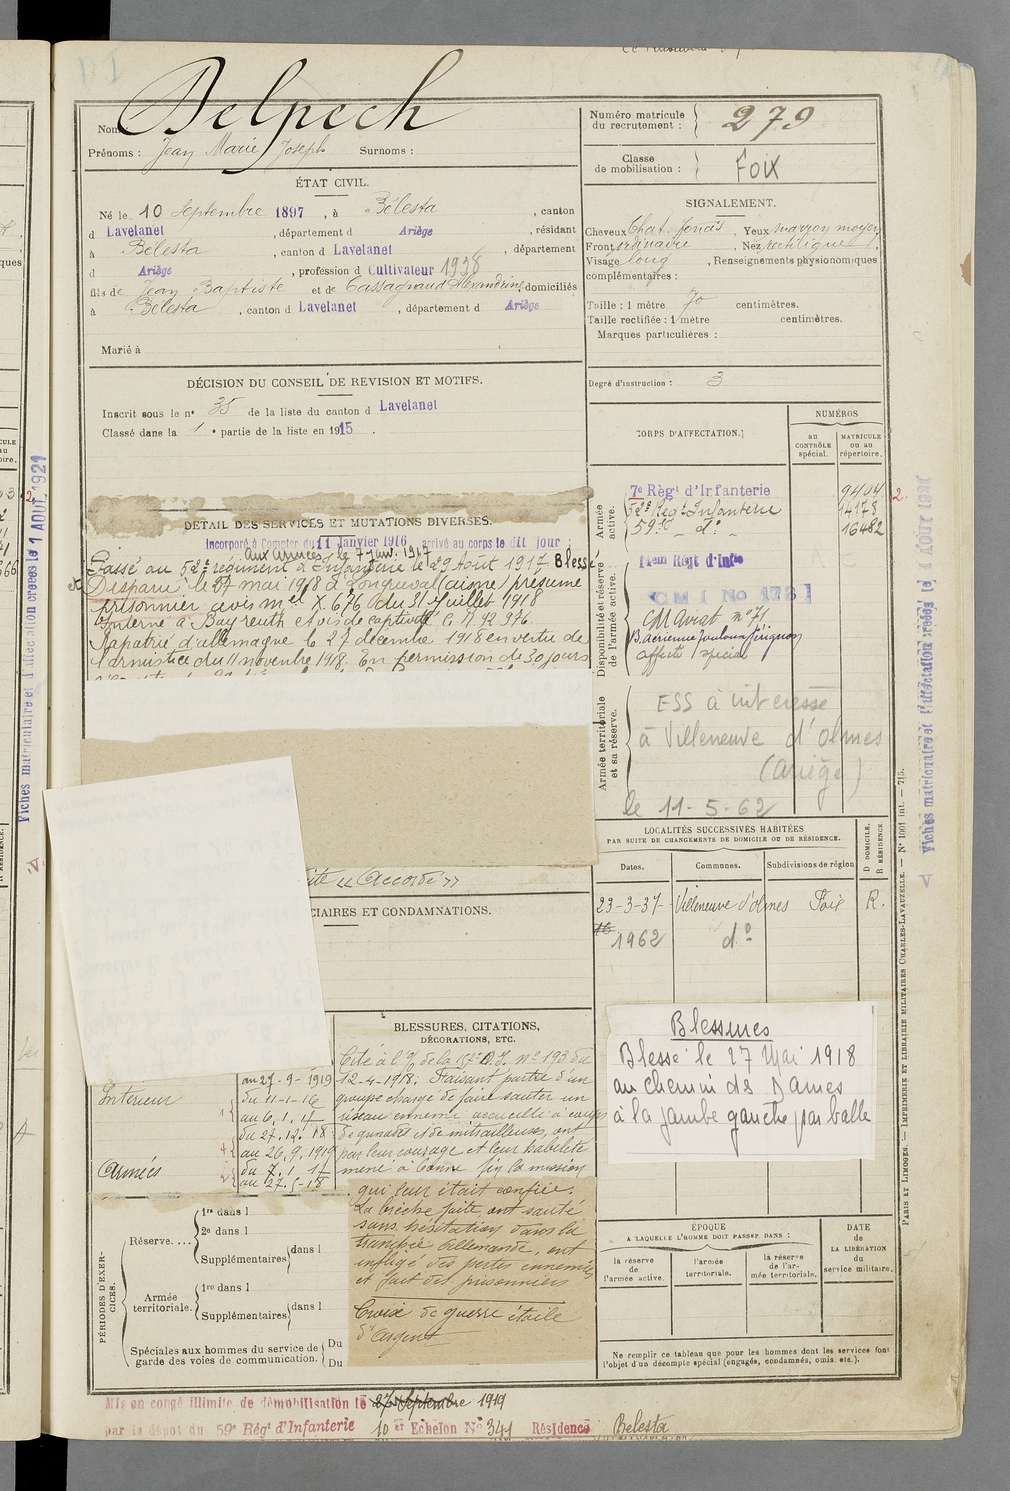 Delpech
Nom
Prénoms : Jean Marie Joseph Surnoms :
Numéro matricule du recrutement : 279
Classe de mobilisation : FOIX
ÉTAT CIVIL.
Né le 10 Septembre 1897, à Bélesta, canton
d Lavelanet, département d Ariège, résidant
à Bélesta, canton d Lavelanet, département
d Ariège, profession d Cultivateur 1938
fils de Jean Baptiste et de Cassagnaud Alexandrine, domiciliés
à Bélesta, canton d Lavelanet, département d Ariège
Marié à
SIGNALEMENT.
Cheveux Chat. foncés, Yeux marron moyen
Front ordinaire, Nez rectiligne,
Visage long, Renseignements physionomiques
complémentaires :
Taille : 1 mètre 70 centimètres.
Taille rectifiée : 1 mètre centimètres.
Marques particulières :
Degré d'instruction : 3
DÉCISION DU CONSEIL DE REVISION ET MOTIFS.
Inscrit sous le n° 35 de la liste du canton d Lavelanet
Classé dans la 1e partie de la liste en 1915.
DÉTAIL DES SERVICES ET MUTATIONS DIVERSES.
Incorporé à Compter du 11 Janvier 1916, arrivé au corps le dit jour
aux armées le 7 janv. 1917
Passé au 52e régiment d'Infanterie le 29 Août 1917 Blessé
Disparu le 27 mai 1918 à Longueval (aisne) présumé
prisonnier avis mel X. 676 du 31 Juillet 1918
Interné à Bayreuth avis de captivité C. N. 92 976
Rapatrié d'allemagne le 27 décembre 1918 en vertu de
l'armistice du 11 novembre 1918. En permission de 30 jours
CORPS D'AFFECTATION.
NUMÉROS
au CONTRÔLE spécial.
MATRICULE ou au répertoire.
Armée active.
7e Régt d'Infanterie 9404
52e Regt Infanterie 14178
59e - do - 16482
Disponibilité et réserve de l'armée active.
14em Régt d'Infie
CMI No 173
B. aérienne Toulouse
affecté spécial
Armée territoriale et sa réserve.
ESS à intéressé
à Villeneuve d'olmes
(Ariège)
le 11-5-62
LOCALITÉS SUCCESSIVES HABITÉES
PAR SUITE DE CHANGEMENTS DE DOMICILE OU DE RÉSIDENCE.
Dates. Communes. Subdivisions de région
D DOMICILE. R RÉSIDENCE
23-3-37 Villeneuve d'olmes Foix R.
1962 do
ite << Accordé >>
CIAIRES ET CONDAMNATIONS.
BLESSURES, CITATIONS,
DÉCORATIONS, ETC.
Intérieur
au 27-9-1919
du 11-1-16
au 6.1.17
du 27.12.18
au 26.9.1919
Armées
du 7.1.17
au 27.5-18
Cité à l'O/ de la 17e D.I. no 193 du
12-4-1918. Faisant partie d'un
groupe chargé de faire sauter un
réseau ennemi accueilli à coups
de grenades et de mitrailleuses, ont
par leur courage et leur habileté
mené à bonne fin la mission
qui leur était confiée.
La brèche faite, ont sauté
sans hésitation dans la
tranchée Allemande, ont
infligé des pertes ennemies
et fait des prisonniers
Croix de guerre étoile
d'Argent
Blessures
Blessé le 27 Mai 1918
au chemin des Dames
à la jambe gauche par balle
PÉRIODES D'EXERCICES.
Réserve.... 1re dans l
2e dans l
Supplémentaires dans l
Armée territoriale. 1re dans l
Supplémentaires dans l
Spéciales aux hommes du service de garde des voies de communication. Du
Du
ÉPOQUE
A LAQUELLE L'HOMME DOIT PASSER DANS :
la réserve de l'armée active.
l'armée territoriale.
la réserve de l'armée territoriale.
DATE de LA LIBÉRATION du service militaire.
Ne remplir ce tableau que pour les hommes dont les services font
l'objet d'un décompte spécial (engagés, condamnés, omis, etc.).
Mis en congé illimité de démobilisation le 27 Septembre 1919
par le dépôt du 59e Régt d'Infanterie 10 er Echelon No 341 Résidence Belesta
PARIS ET LIMOGES. — IMPRIMERIE ET LIBRAIRIE MILITAIRES CHARLES-LAVAUZELLE. — N° 1001 int. — 715.
Fiches matriculaire et d'affectation créées le 1 AOUT 1921
Fiches matriculaire et d'affectation créées le 1 AOUT 1921